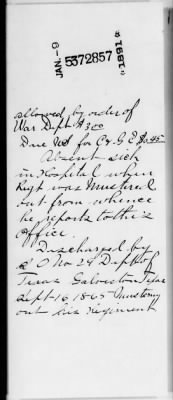 JAN -9
5372857
1918
allowed by order of
War Dept $300
Due US for C & G E $0.45
Absent sick
in Hospital when
Regt was Mustered
out from whence
he reports to this
office.
Discharged by
S O No 24 Dept of
Texas Galveston Texas
Sept 16 1865 Mustering
out his regiment